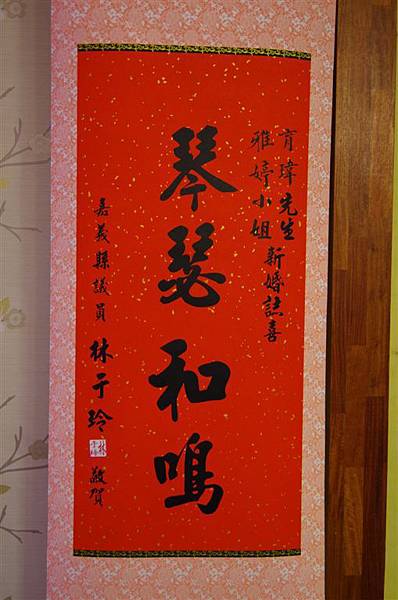 育瑋先生
雅婷小姐
新婚誌喜
琴瑟和鳴
嘉義縣議員 林于玲 敬賀